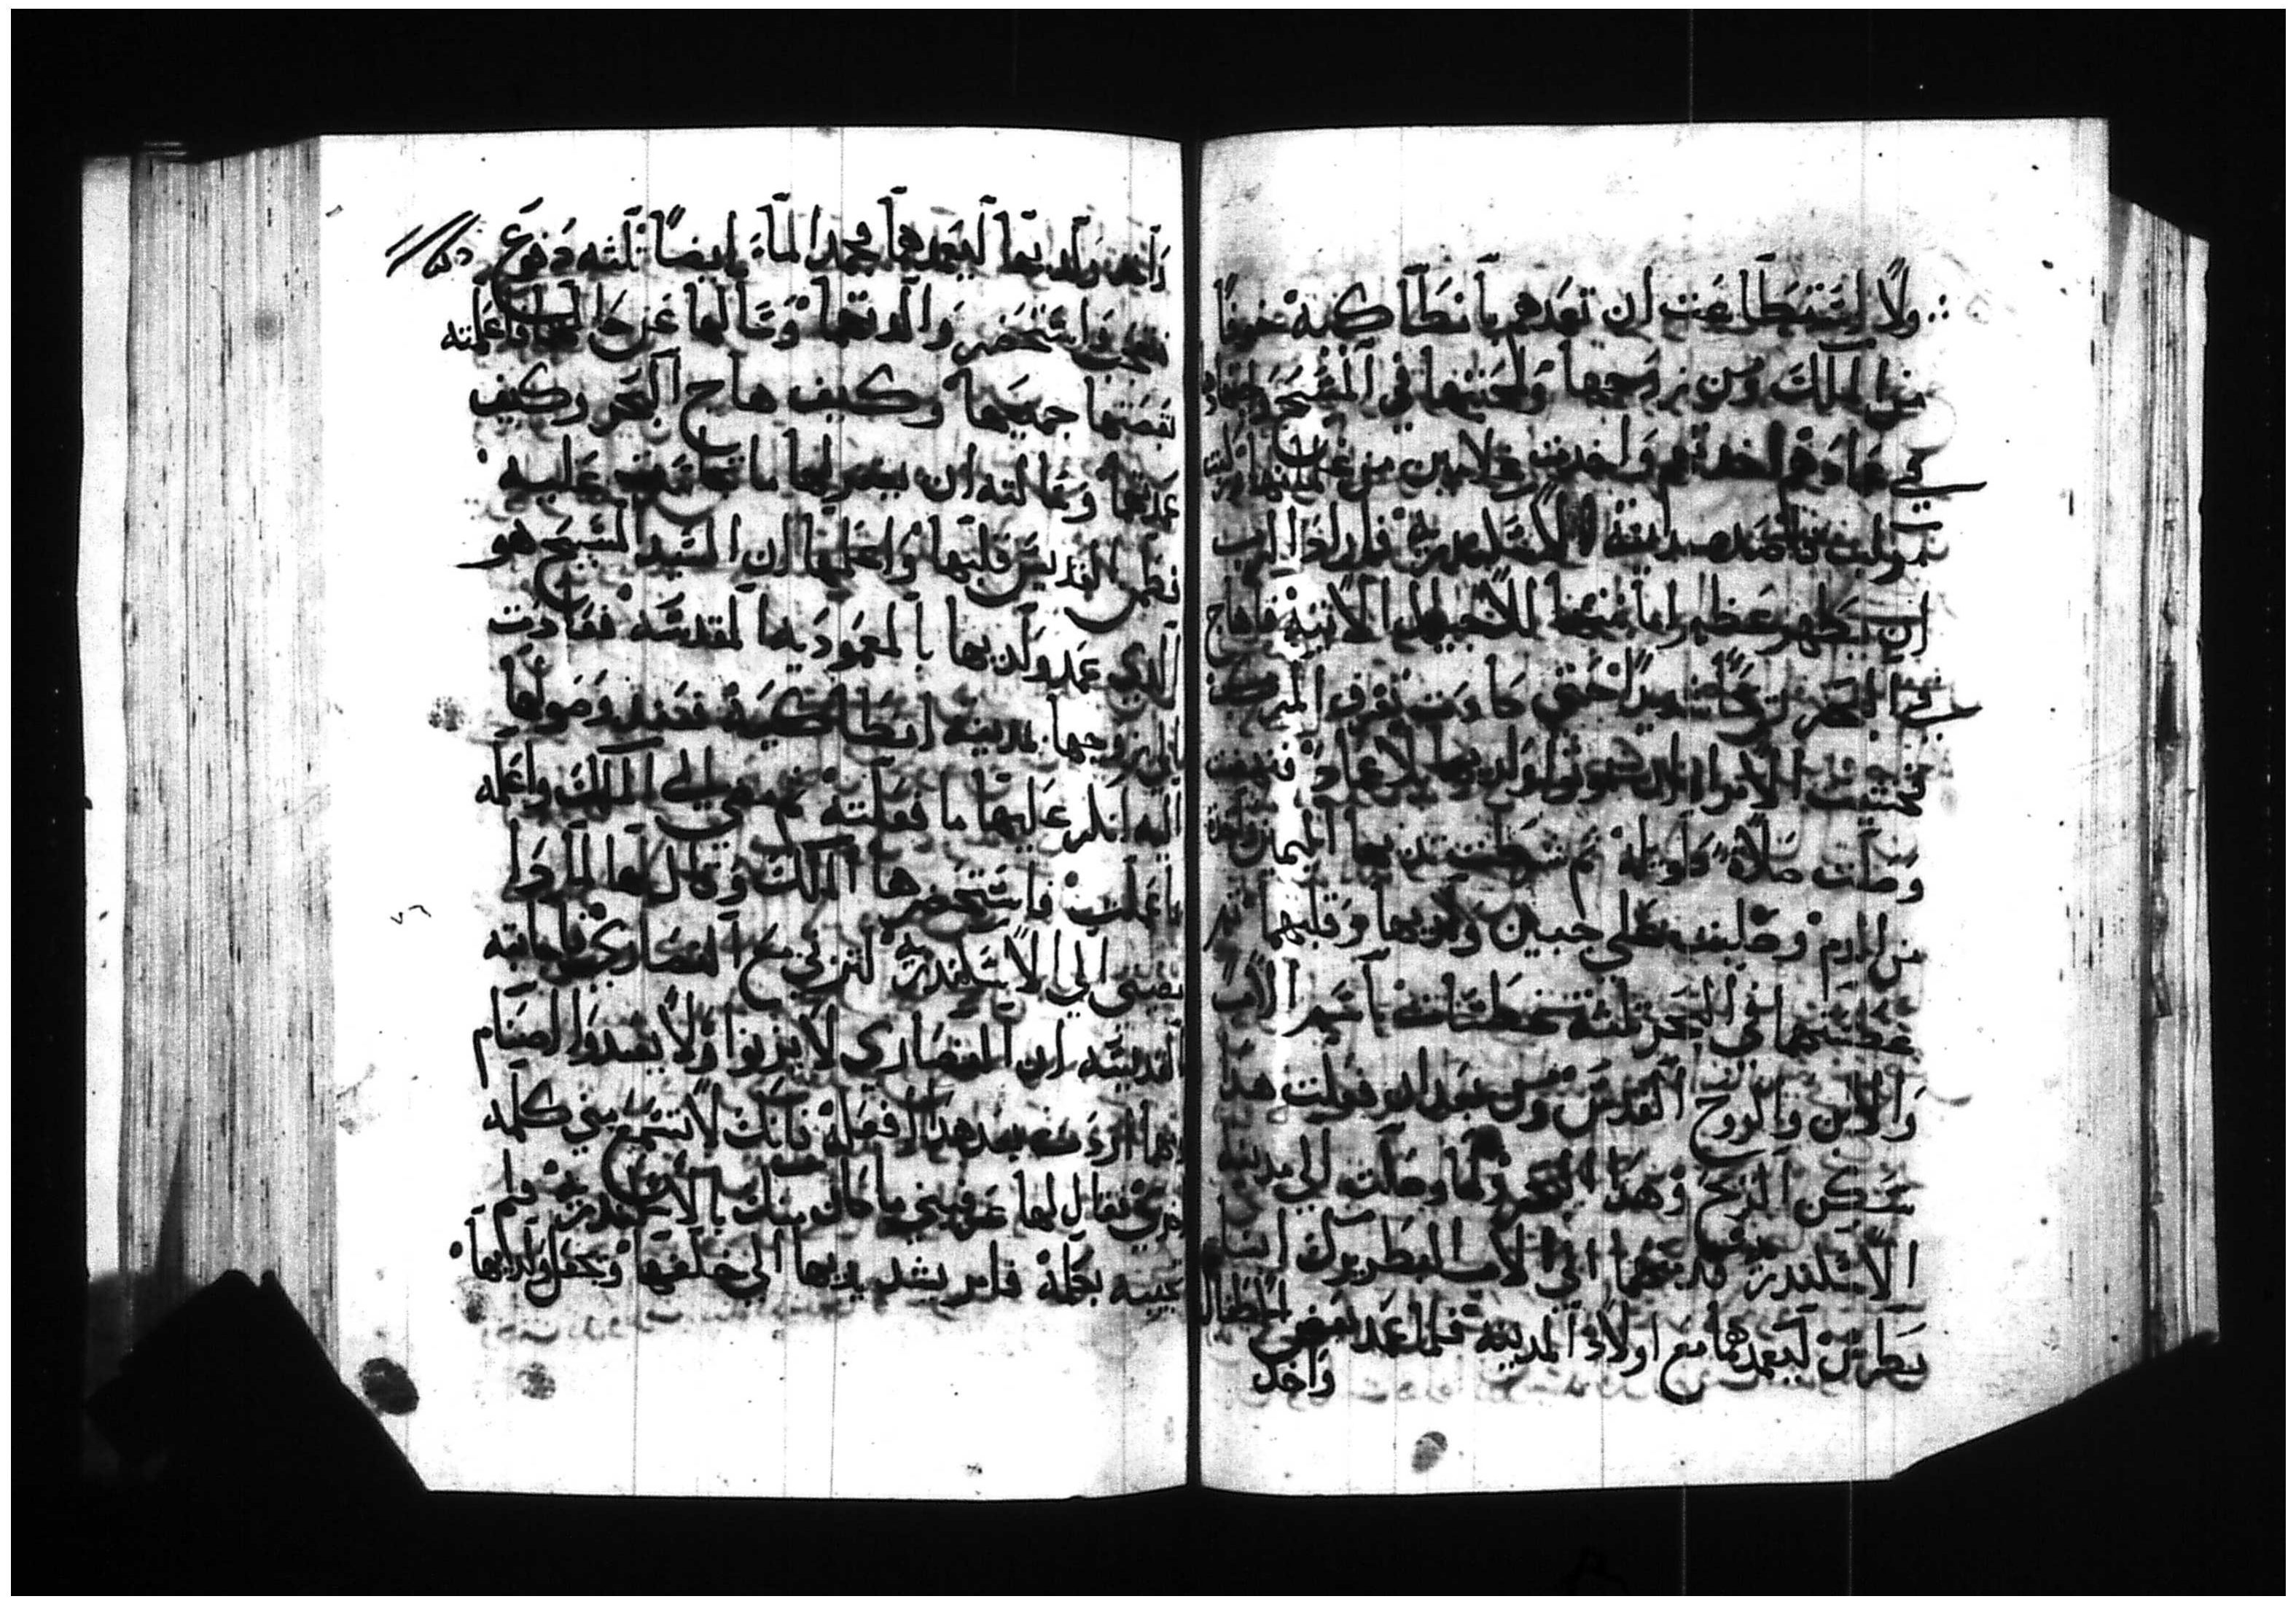 ولا استطاعت ان تعمدهم بانطاكية خوفا
من الملك ومن زوجها ولمحبتها في المسيح
في عمادهم اخدتهم واخدت غلامين من غلمانها
قاصده مدينة الاسكندرية فاراد الرب
ان يظهر عظم امانتها للاجيال الاتية فاهاج
في البحر ريحا شديدا حتى كادت تغرق المركب
فخشيت الامراه ان يموتوا ولديها بلا عماد
وصلت صلاة طويله ثم شرطت تديها اليمين
من الدم وصلبت على جبين ولديها وقلبهما
غطستهما في البحر تلته غطسات باسم الاب
والابن والروح القدس ومن بعد ان فعلت هدا
سكن الريح وهدا البحر ولما وصلت الي مدينة
الاسكندرية قدمتهما الى الاب البطريرك انبا
بطرس ليعمدهما مع اولاد المدينة فلما عمد بعض الاطفال
واخد
واخد ولديها ليعمدهما فجمد الماء ايضا تلته دفوع
واستحضر والدتهما وسالها عن حالها فاعلمته
بقصتها جميعها وكيف هاج البحر وكيف
عمدتهما وسالته ان يغفر لها ما تجاسرت عليه
القديس قلبها واعلمها ان السيد المسيح هو
الدي عمد ولديها بالمعموديه المقدسه فعادت
الي زوجها بمدينة انطاكية فعند وصولها
اليه انكر عليها ما فعلته ثم مضي الي الملك واعلمه
بما عملت فاستحضرها الملك وقال لها لمادا
تمضي الي الاسكندرية لتزني مع النصاري فاجابته
القديسه ان النصاري لا يزنوا ولا يعبدوا الاصنام
ومهما اردت بعد هدا افعله فانك لا تسمع مني كلمه
اخري فقال لها عرفيني ما كان منك بالاسكندرية فلم
تجيبه بكلمة فامر بشد يديها الي خلفها وبجعل ولديها